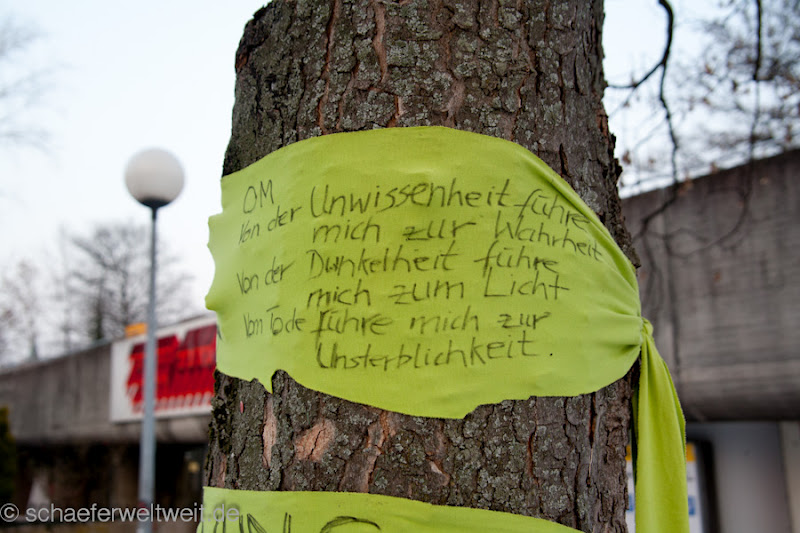 OM
Von der Unwissenheit führe
mich zur Wahrheit
Von der Dunkelheit führe
mich zum Licht
Vom Tode führe mich zur
Unsterblichkeit.
© schaeferweltweit.de